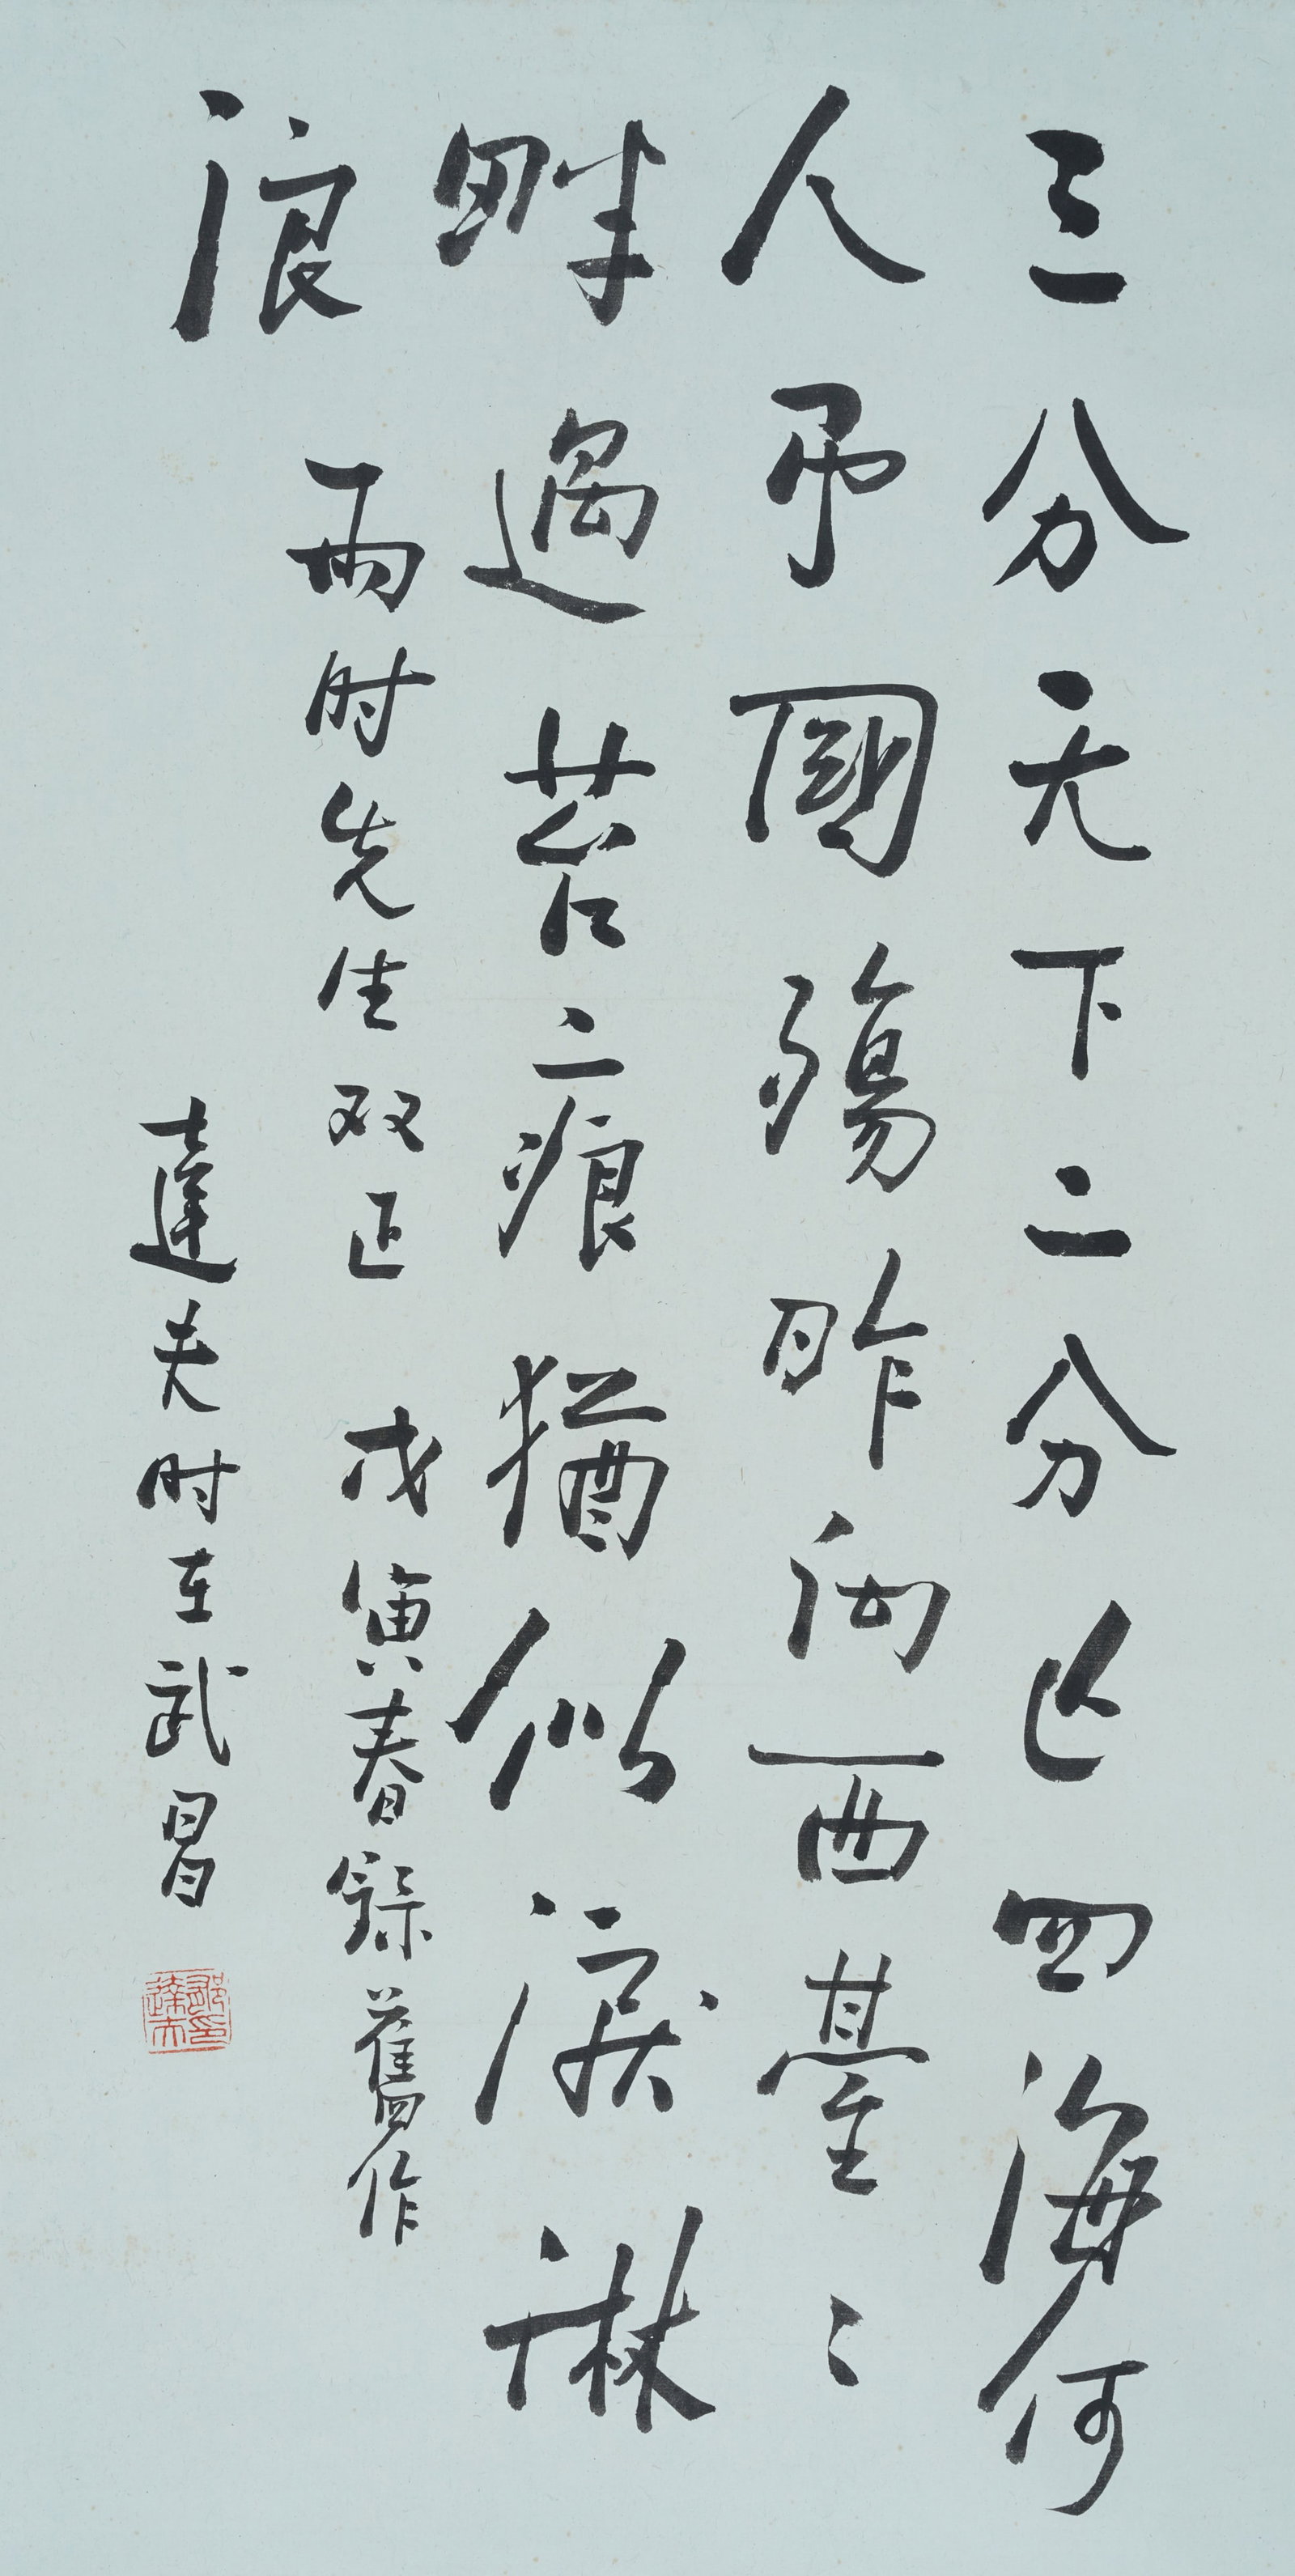 三分天下二分亡四海何
人吊國殤昨向西臺臺
畔過苔痕猶似淚淋
浪 雨时先生双正 戊寅春録舊作
達夫时在武昌
郁達夫印